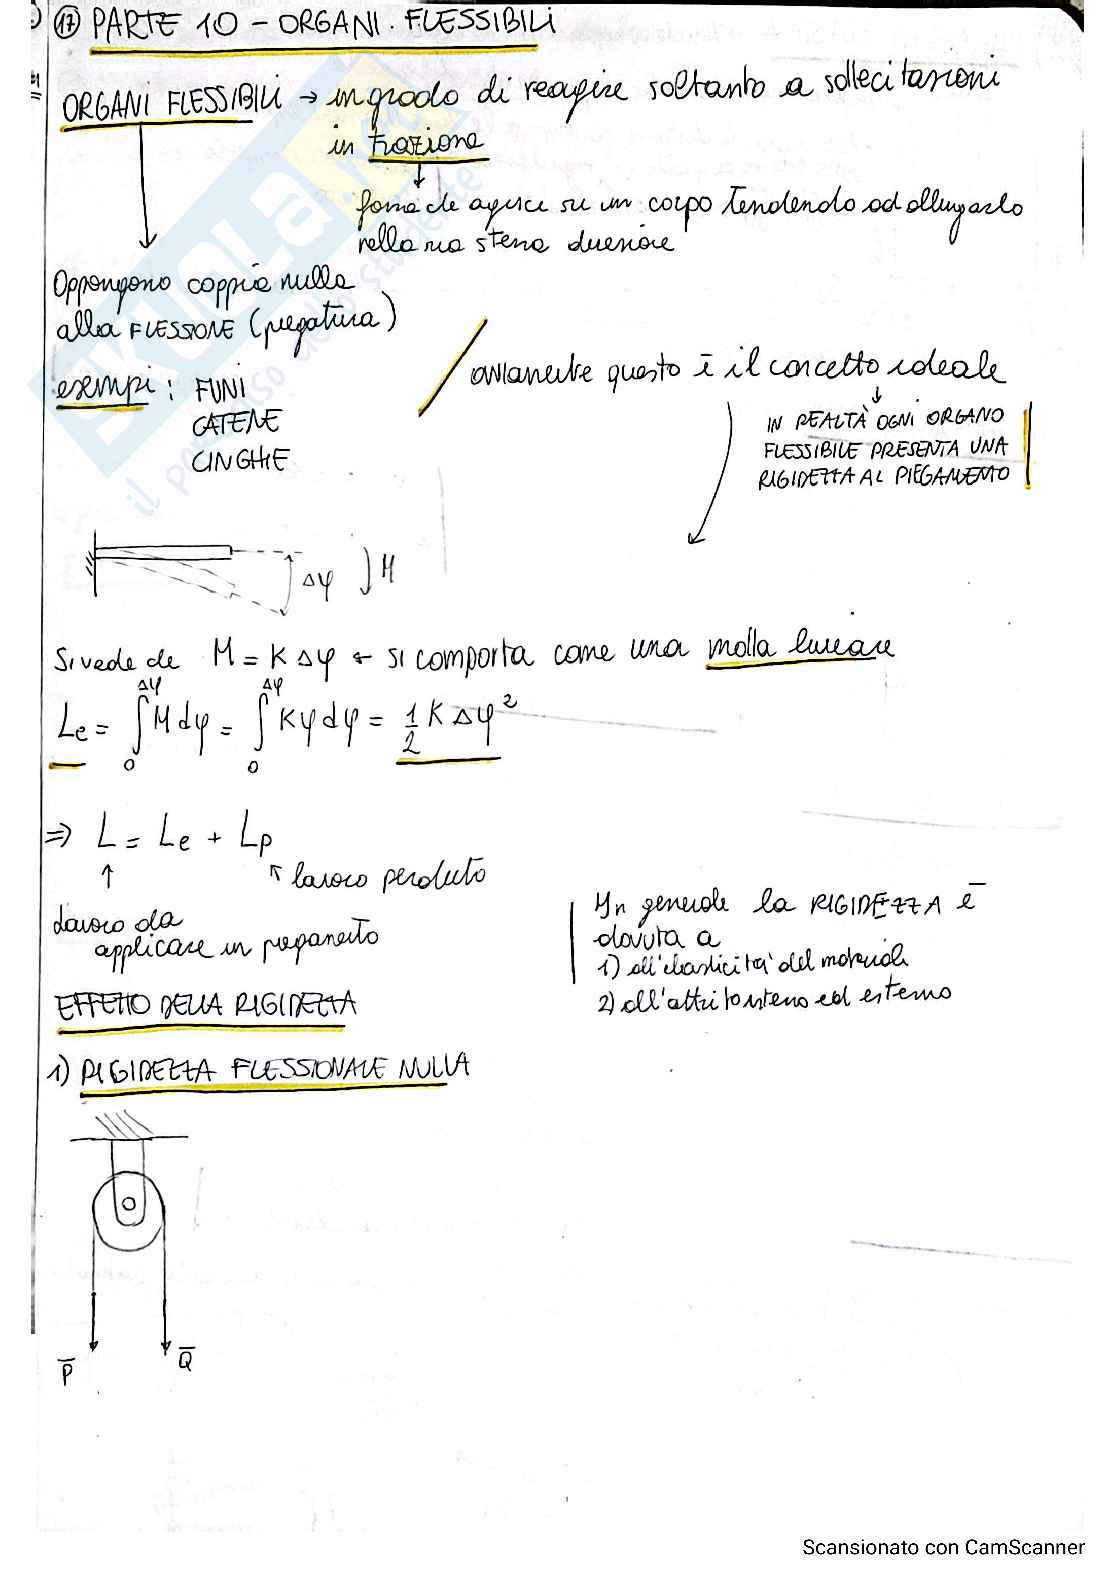 17 PARTE 10 - ORGANI FLESSIBILI
ORGANI FLESSIBILI → in grado di reagire soltanto a sollecitazioni
in trazione
forza che agisce su un corpo tendendo ad allungarlo
nella sua stessa direzione
Oppongono coppia nulla
alla FLESSIONE (piegatura)
esempi: FUNI
CATENE
CINGHIE
ovviamente questo è il concetto ideale
IN REALTÀ OGNI ORGANO
FLESSIBILE PRESENTA UNA
RIGIDEZZA AL PIEGAMENTO
Δφ
M
Si vede che M = K Δφ ← SI COMPORTA come una molla lineare
Le = ∫₀^Δφ M dφ = ∫₀^Δφ Kφ dφ = 1/2 K Δφ²
⇒ L = Le + Lp
lavoro perduto
Lavoro da
applicare in piegamento
In generale la RIGIDEZZA è
dovuta a
1) all'elasticità del materiale
2) all'attrito interno ed esterno
EFFETTO DELLA RIGIDEZZA
1) RIGIDEZZA FLESSIONALE NULLA
P
Q
SKUOLA.net
il paradiso dello studente
Scansionato con CamScanner